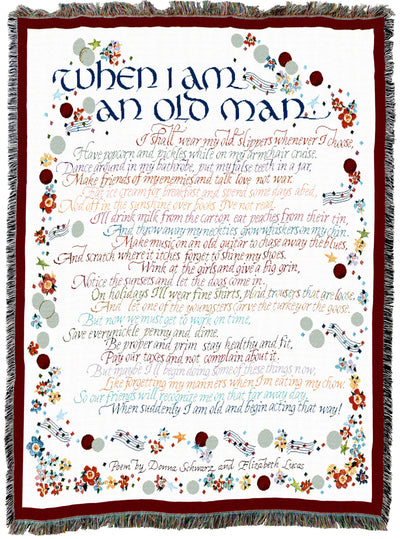 When I am
an old man...
I shall wear my old slippers whenever I choose,
Have popcorn and pickles while on my armchair cruise.
Dance around in my bathrobe, put my false teeth in a jar,
Make friends of my enemies and talk love not war.
Eat ice cream for breakfast and spend some days abed,
Nod off in the sunshine over books I've not read.
I'll drink milk from the carton eat peaches from their tin,
And throw away my neckties grow whiskers on my chin.
Make music on an old guitar to chase away the blues,
And scratch where it itches forget to shine my shoes.
Wink at the girls and give a big grin,
Notice the sunsets and let the dogs come in.
On holidays I'll wear fine shirts, plaid trousers that are loose,
And let one of the youngsters carve the turkey or the goose.
But now we must get to work on time,
Save every nickle penny and dime.
Be proper and prim stay healthy and fit,
Pay our taxes and not complain about it.
But maybe I'll begin doing some of these things now,
Like forgetting my manners when I'm eating my chow.
So our friends will recognize me on that far away day
When suddenly I am old and begin acting that way!
Poem by Donna Schwarz and Elizabeth Lucas